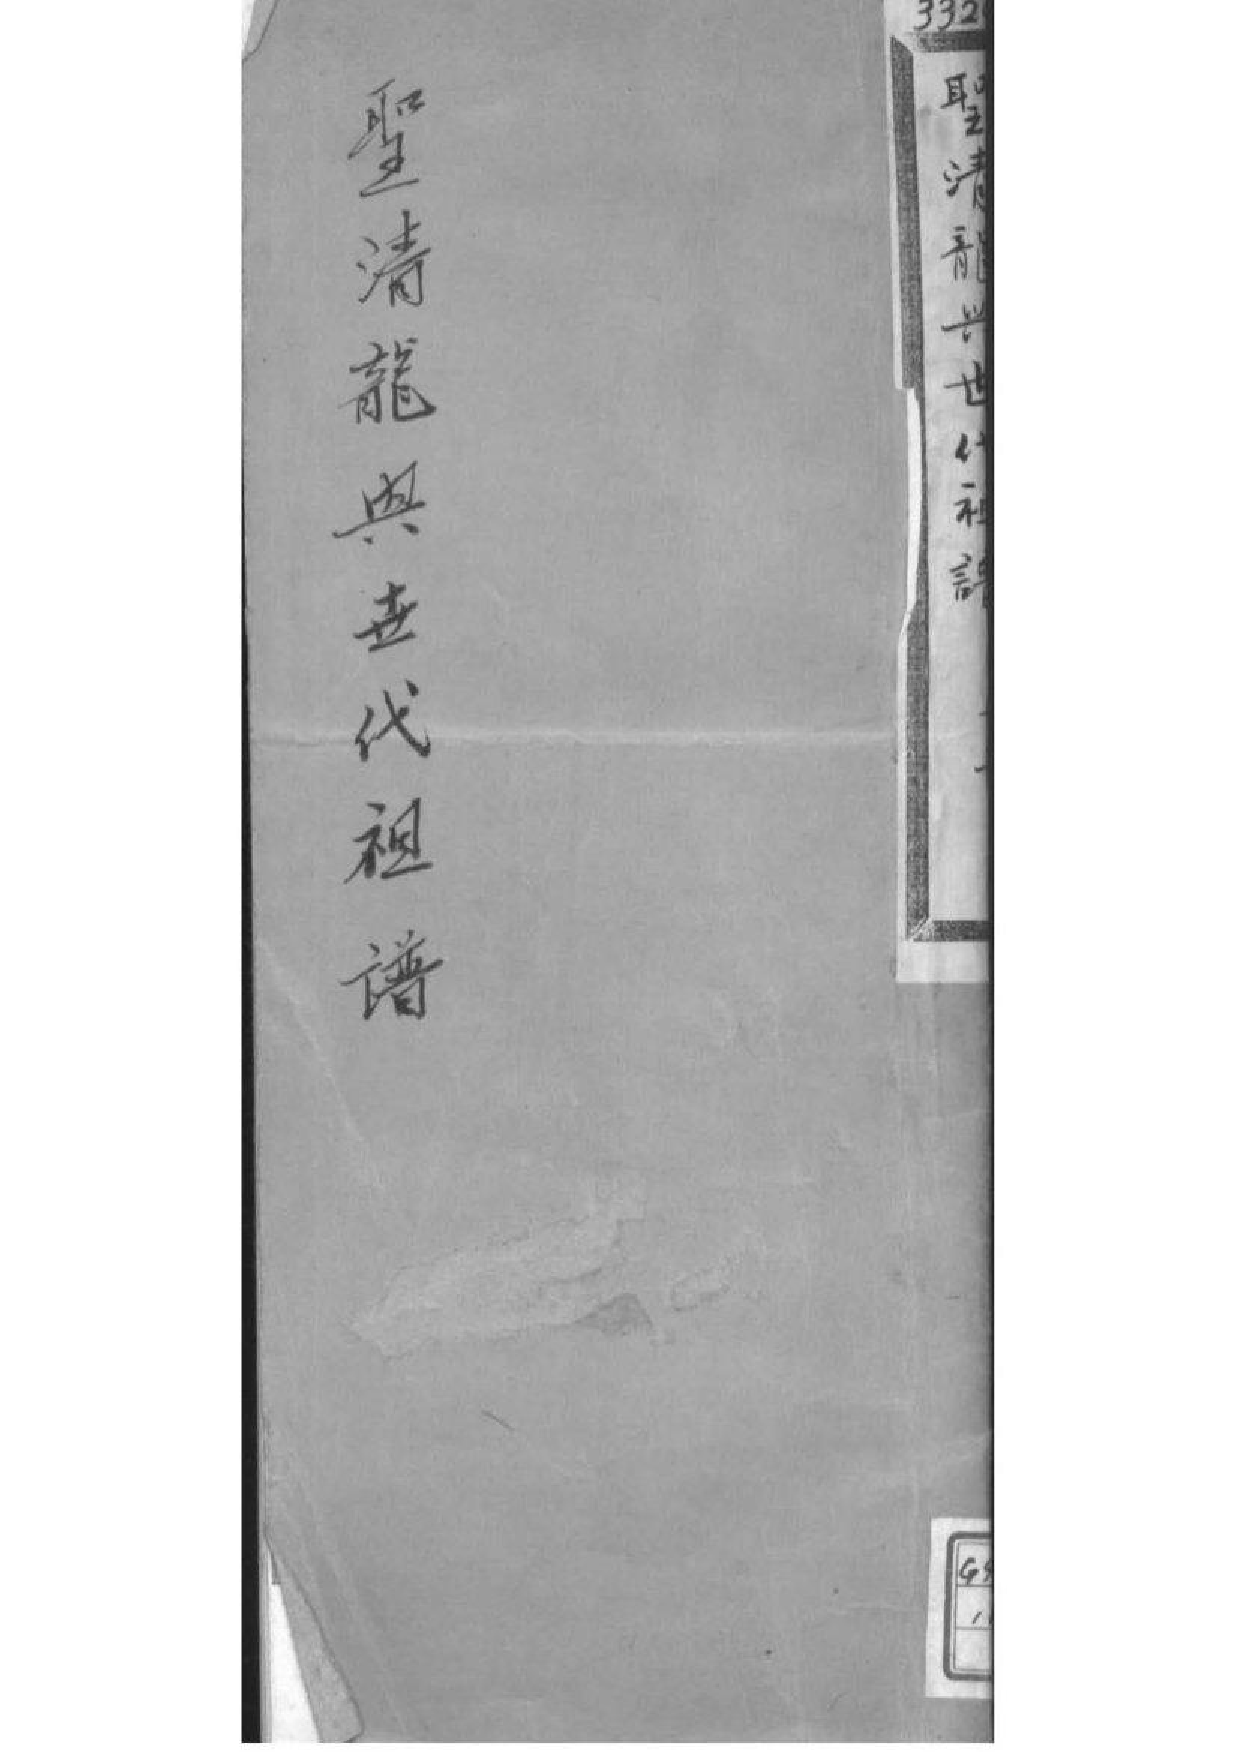 332
聖清龍兴世代祖譜
聖清龍興世代祖譜